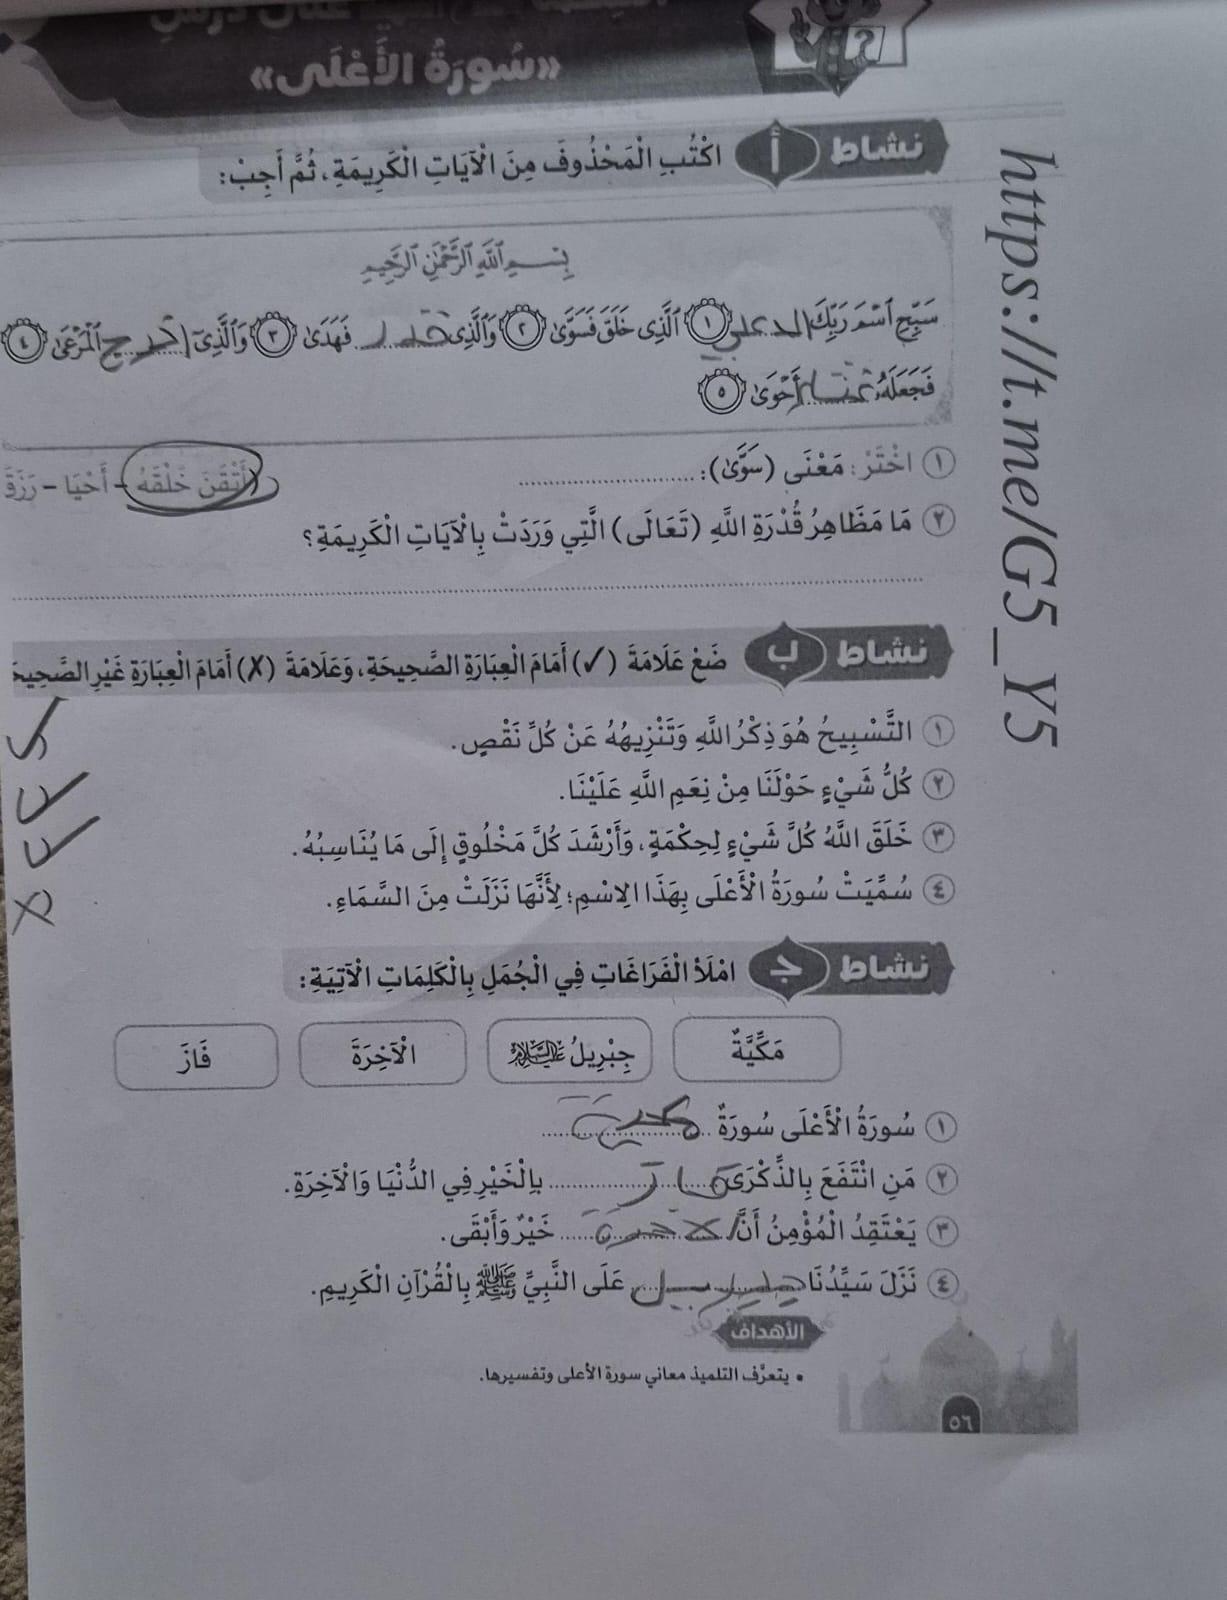 «سُورَةُ الأَعْلَى»
نشاط أ اكْتُبِ الْمَحْذُوفَ مِنَ الْآيَاتِ الْكَرِيمَةِ، ثُمَّ أَجِبْ:
بِسْمِ ٱللَّهِ ٱلرَّحْمَٰنِ ٱلرَّحِيمِ
سَبِّحِ ٱسْمَ رَبِّكَ الاعلى ١ ٱلَّذِى خَلَقَ فَسَوَّىٰ ٢ وَٱلَّذِى قدر فَهَدَىٰ ٣ وَٱلَّذِىٓ اخرج ٱلْمَرْعَىٰ ٤
فَجَعَلَهُۥ غثاء أَحْوَىٰ ٥
١ اخْتَرْ: مَعْنَى (سَوَّىٰ): .................... (أَتْقَنَ خَلْقَهُ - أَحْيَا - رَزَقَ
٢ مَا مَظَاهِرُ قُدْرَةِ اللَّهِ (تَعَالَى) الَّتِي وَرَدَتْ بِالْآيَاتِ الْكَرِيمَةِ؟
نشاط ب ضَعْ عَلَامَةَ (✓) أَمَامَ الْعِبَارَةِ الصَّحِيحَةِ، وَعَلَامَةَ (✗) أَمَامَ الْعِبَارَةِ غَيْرِ الصَّحِيحَ
١ التَّسْبِيحُ هُوَ ذِكْرُ اللَّهِ وَتَنْزِيهُهُ عَنْ كُلِّ نَقْصٍ. ✓
٢ كُلُّ شَيْءٍ حَوْلَنَا مِنْ نِعَمِ اللَّهِ عَلَيْنَا. ✓
٣ خَلَقَ اللَّهُ كُلَّ شَيْءٍ لِحِكْمَةٍ، وَأَرْشَدَ كُلَّ مَخْلُوقٍ إِلَى مَا يُنَاسِبُهُ. ✓
٤ سُمِّيَتْ سُورَةُ الْأَعْلَى بِهَذَا الِاسْمِ؛ لِأَنَّهَا نَزَلَتْ مِنَ السَّمَاءِ. ✗
نشاط جـ امْلَأِ الْفَرَاغَاتِ فِي الْجُمَلِ بِالْكَلِمَاتِ الْآتِيَةِ:
مَكِّيَّةٌ جِبْرِيلُ عَلَيْهِ السَّلَامُ الْآخِرَةَ فَازَ
١ سُورَةُ الْأَعْلَى سُورَةٌ مكية
٢ مَنِ انْتَفَعَ بِالذِّكْرَى فاز بِالْخَيْرِ فِي الدُّنْيَا وَالْآخِرَةِ.
٣ يَعْتَقِدُ الْمُؤْمِنُ أَنَّ الاخرة خَيْرٌ وَأَبْقَى.
٤ نَزَلَ سَيِّدُنَا جبريل عَلَى النَّبِيِّ ﷺ بِالْقُرْآنِ الْكَرِيمِ.
الأهداف
• يتعرَّف التلميذ معاني سورة الأعلى وتفسيرها.
٥٦
https://t.me/G5_Y5